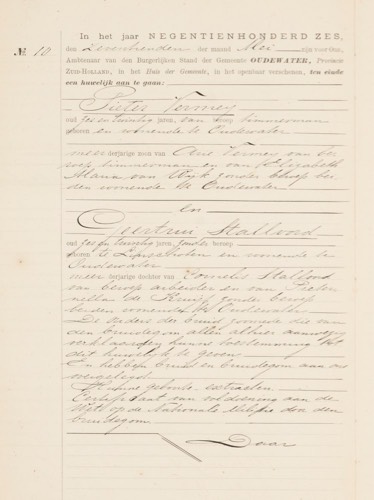 № 10
In het jaar NEGENTIENHONDERD ZES,
den Zeventienden der maand Mei zijn voor Ons,
Ambtenaar van den Burgerlijken Stand der Gemeente OUDEWATER, Provincie
ZUID-HOLLAND, in het Huis der Gemeente, in het openbaar verschenen, ten einde
een huwelijk aan te gaan:
Pieter Vermey
oud zes en twintig jaren, van beroep timmerman
geboren en wonende te Oudewater
meerderjarige zoon van Arie Vermey van be-
roep timmerman en van Elizabeth
Maria van Wijk zonder beroep bei
den wonende te Oudewater
en
Geertrui Stalvord
oud zes en twintig jaren, zonder beroep
geboren te en wonende te
Oudewater
meerderjarige dochter van Cornelis Stalvord
van beroep arbeider en van Pieter-
nella de Kruijf zonder beroep
beiden wonende te Oudewater
De ouders der bruid zoomede die van
den bruidegom allen alhier aanwezig
verklaarden hunne toestemming tot
dit huwelijk te geven
En hebben bruid en bruidegom aan ons
overgelegd
Hunne geboorte extracten
Certificaat van voldoening aan de
Wet op de Nationale Militie door den
bruidegom
Daar